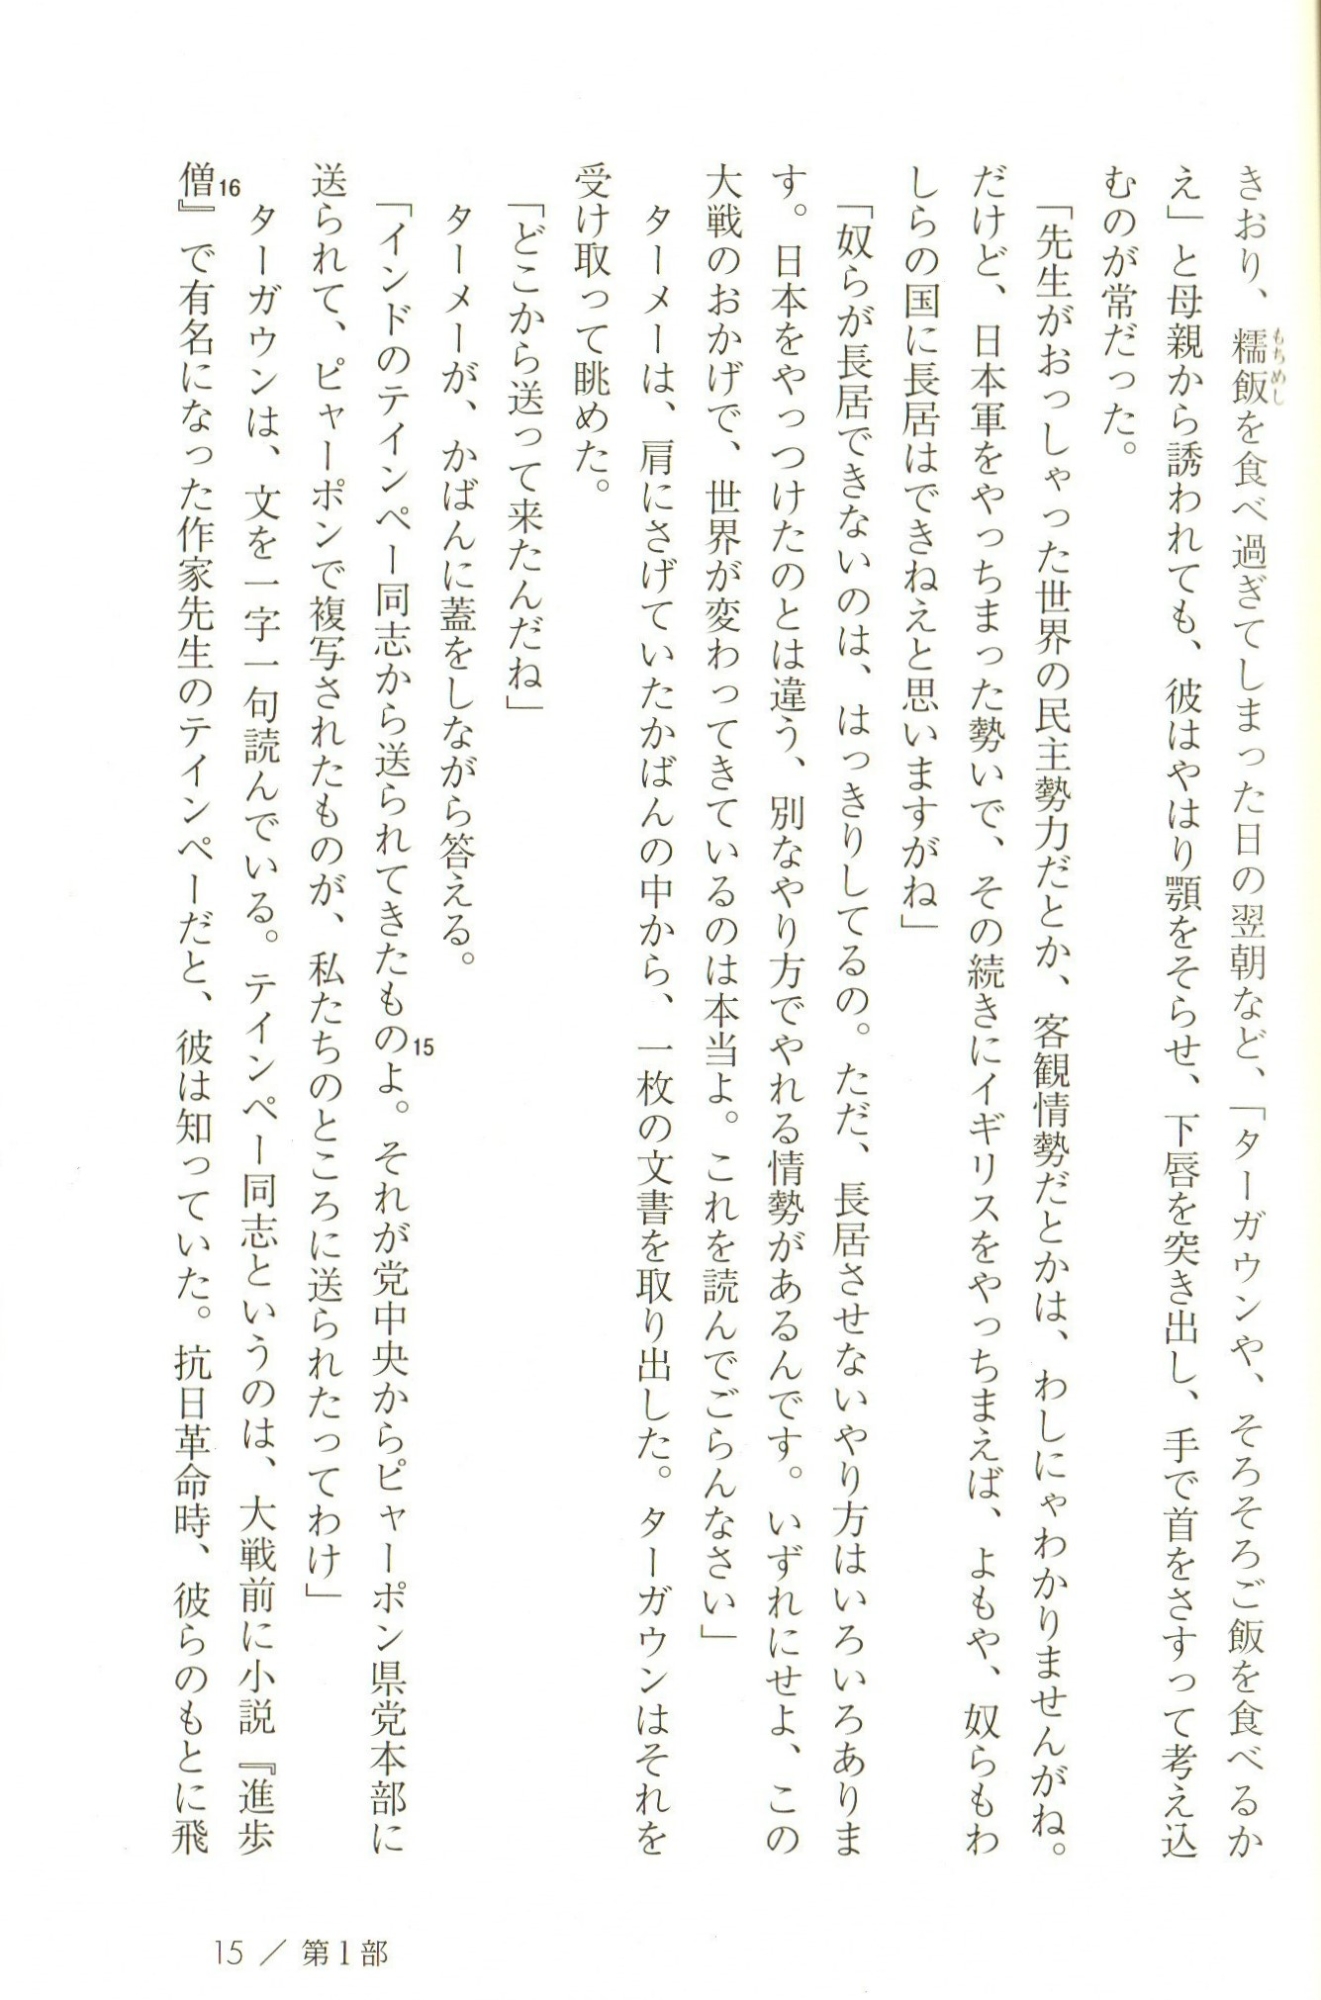 きおり、糯飯を食べ過ぎてしまった日の翌朝など、「ターガウンや、そろそろご飯を食べるか
もちめし
え」と母親から誘われても、彼はやはり顎をそらせ、下唇を突き出し、手で首をさすって考え込
むのが常だった。
「先生がおっしゃった世界の民主勢力だとか、客観情勢だとかは、わしにゃわかりませんがね。
だけど、日本軍をやっちまった勢いで、その続きにイギリスをやっちまえば、よもや、奴らもわ
しらの国に長居はできねえと思いますがね」
「奴らが長居できないのは、はっきりしてるの。ただ、長居させないやり方はいろいろありま
す。日本をやっつけたのとは違う、別なやり方でやれる情勢があるんです。いずれにせよ、この
大戦のおかげで、世界が変わってきているのは本当よ。これを読んでごらんなさい」
ターメーは、肩にさげていたかばんの中から、一枚の文書を取り出した。ターガウンはそれを
受け取って眺めた。
「どこから送って来たんだね」
ターメーが、かばんに蓋をしながら答える。
「インドのテインペー同志から送られてきたものよ。それが党中央からピャーポン県党本部に
15
送られて、ピャーポンで複写されたものが、私たちのところに送られたってわけ」
ターガウンは、文を一字一句読んでいる。テインペー同志というのは、大戦前に小説『進歩
僧』で有名になった作家先生のテインペーだと、彼は知っていた。抗日革命時、彼らのもとに飛
16
15 ／ 第1部